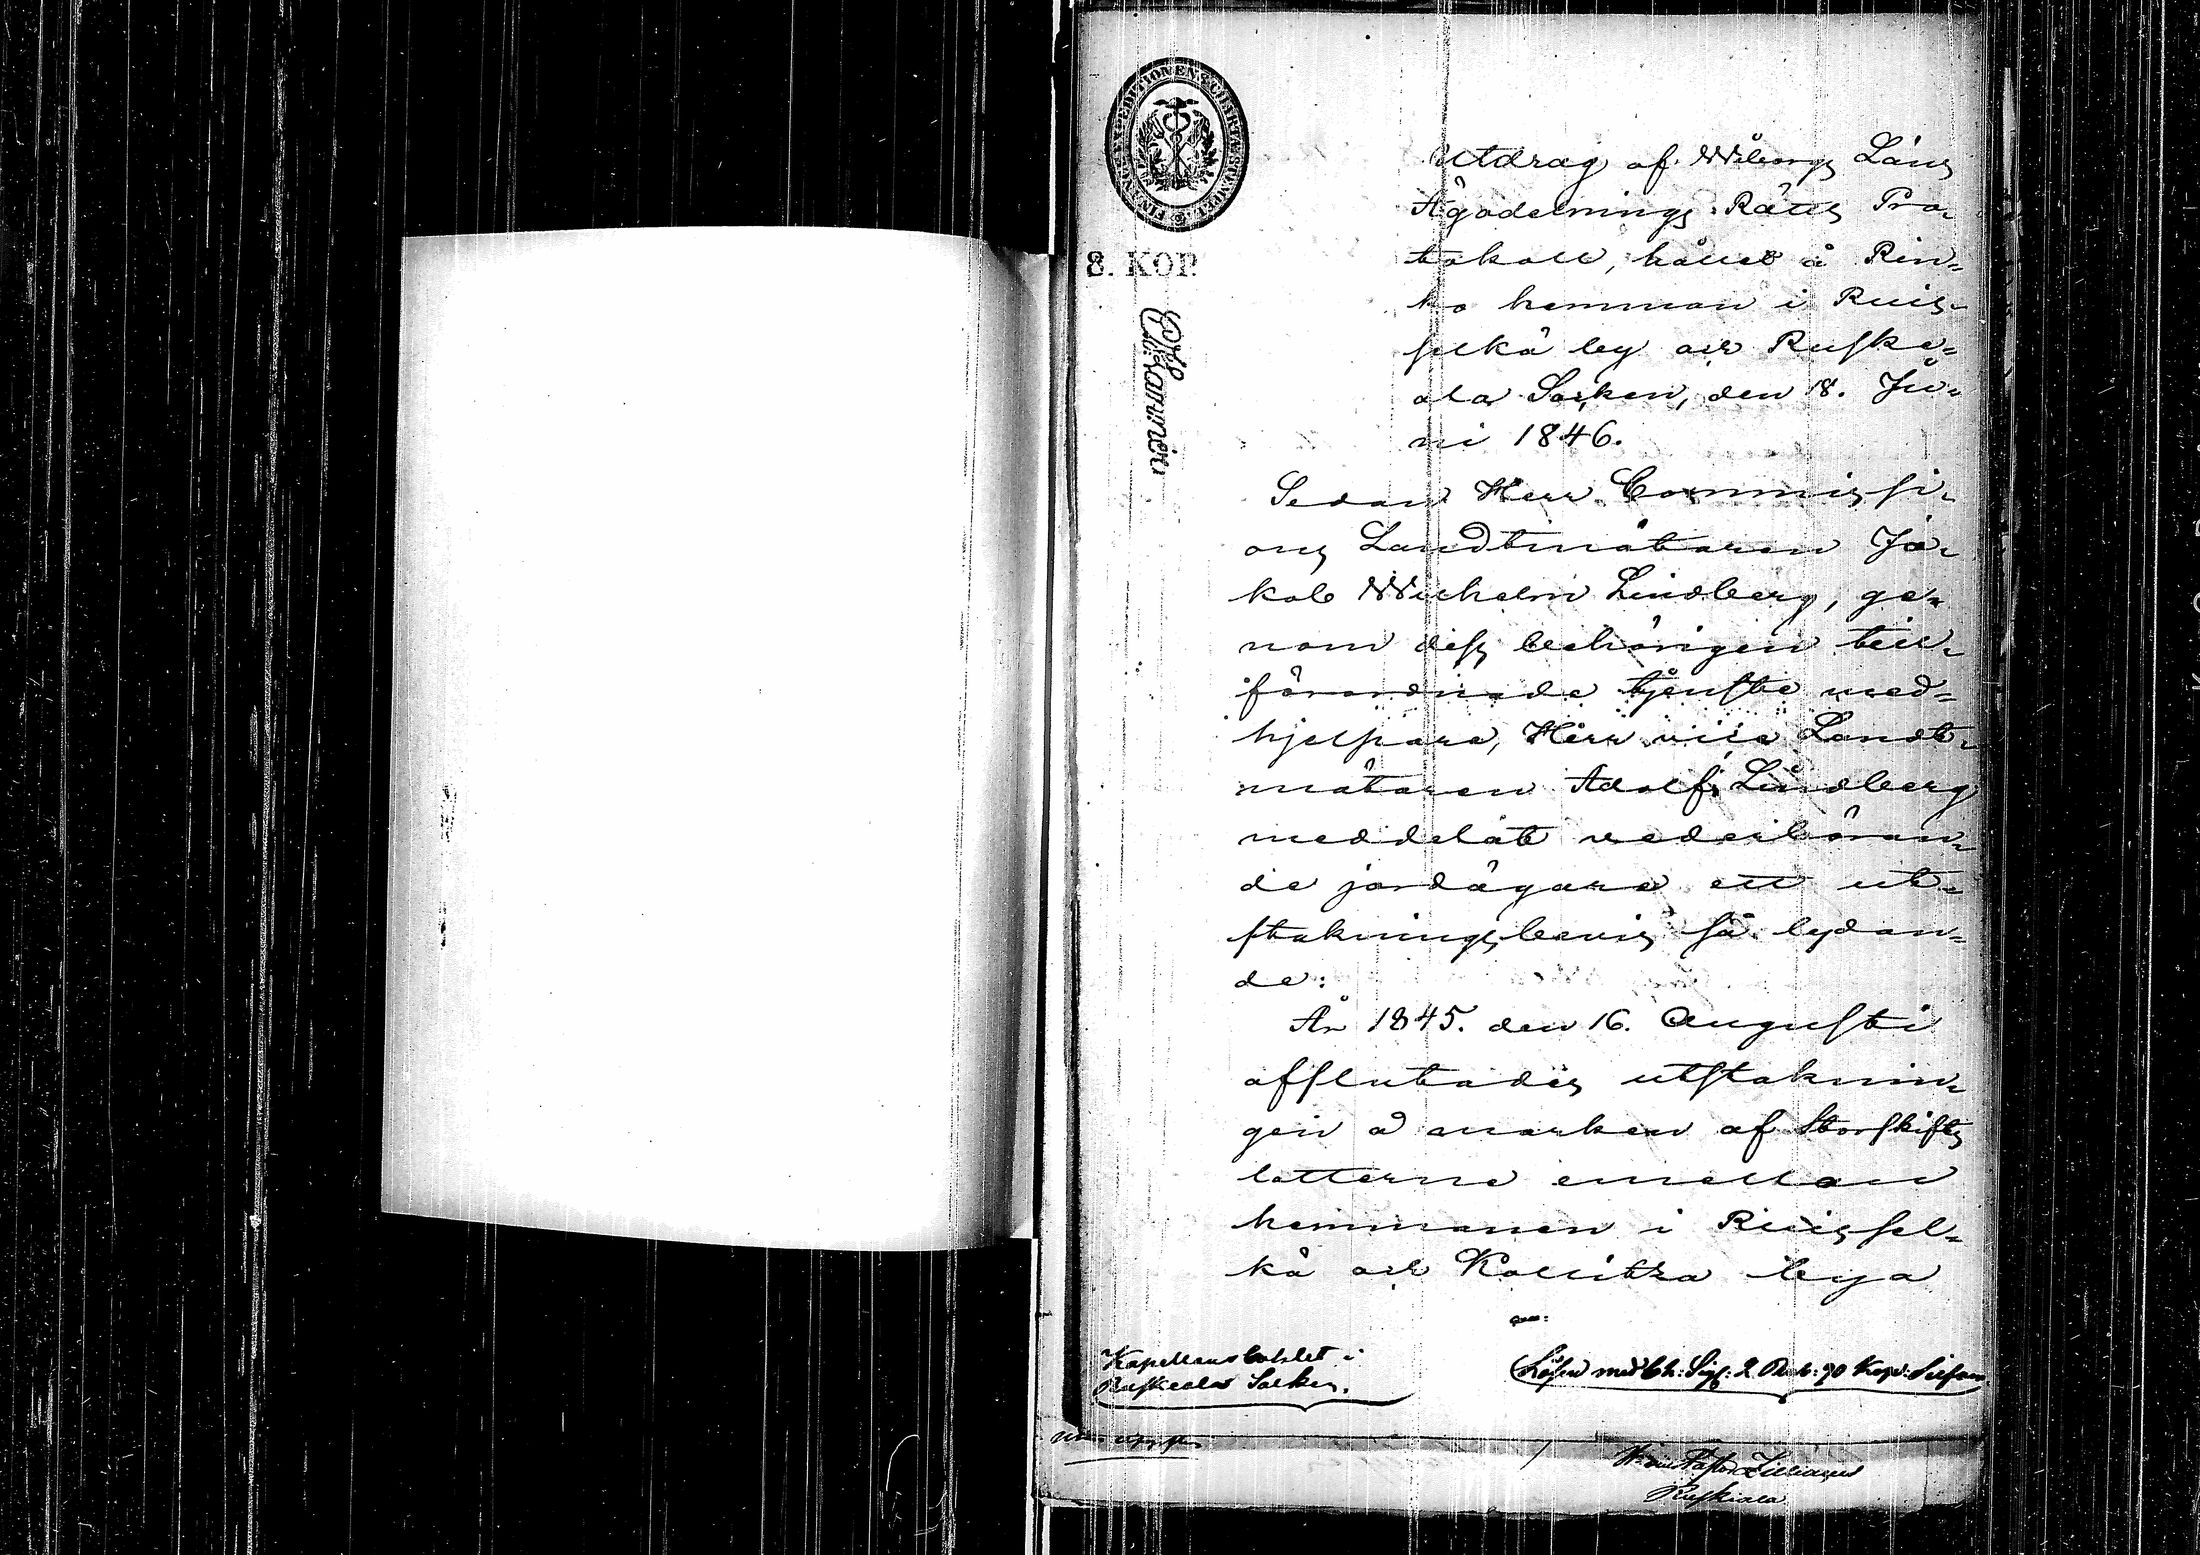 FINANCE EXPEDITIONENS CHARTÆ STÄMPEL
8. KOP.
Utdrag af Wiborgs Läns
Ägodelnings Rätts Pro-
tokoll, hållet å Rin-
ko hemman i Ruis-
selkä by och Ruske-
ala Socken, den 18. Ju-
ni 1846.
Sedan Herr Commissi-
ons Landtmätaren Ja-
kob Wilhelm Lindberg, ge-
nom dess behörigen till-
förordnade tjenste med-
hjelpare, Herr vice Landt-
mätaren Adolf Lindberg
meddelat vederböran-
de jordägare ett ut-
stakningsbevis så lydan-
de:
År 1845. den 16. Augusti
afslutades utstaknin-
gen å marken af Storskifts
lotterne emellan
hemmanen i Ruissel-
kä och Kallitza bya
Kapellansbohlet i
Ruskeala Socken.
Lösen med Ch: Sig: 2 Rub: 90 Kop: Silfver
Ruskiala